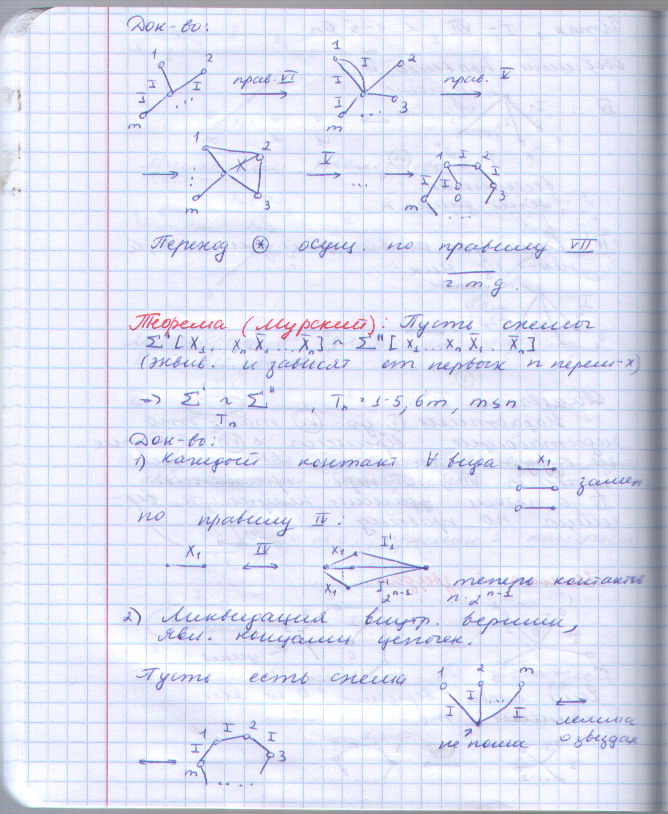 Док-во:
1 2 I I I m ... прав. VI 1 I 2 I I 3 m ... прав. V
1 2 3 m V ... 1 I 2 I I I 3 m ...
Переход ⊛ осущ. по правилу VII
ч т д.
Теорема (Мурский): Пусть схемы
Σ'[x₁...xₙ x̄₁...x̄ₙ] ~ Σ''[x₁...xₙ x̄₁...x̄ₙ]
(эквив. и зависят от первых n перем-х)
=> Σ' ~ Σ'' , Tₙ = 1-5, 6m, m≤n
Tₙ
Док-во:
1) каждый контакт ∀ вида x₁ замен.
по правилу IV:
x₁ IV x₁ I'₁ x₁ I'₂ⁿ⁻¹ теперь контакты n·2ⁿ⁻¹
2) Ликвидация внутр. вершин,
явл. концами цепочек.
Пусть есть схема 1 2 m I I ... I
не полюс лемма о звездах
1 I 2 I I 3 m ...